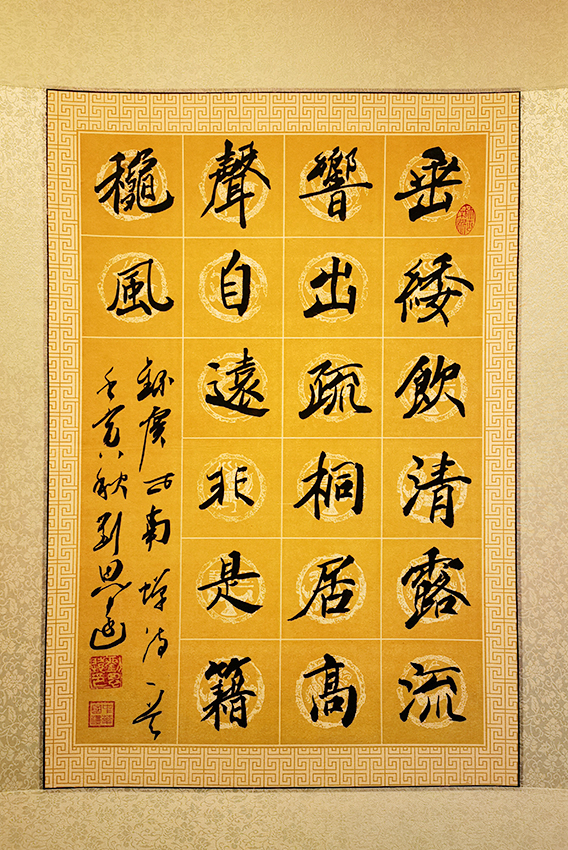 垂緌飲清露流
響出疏桐居高
聲自遠非是籍
穐風
録虞世南蟬詩一首
壬寅秋劉思